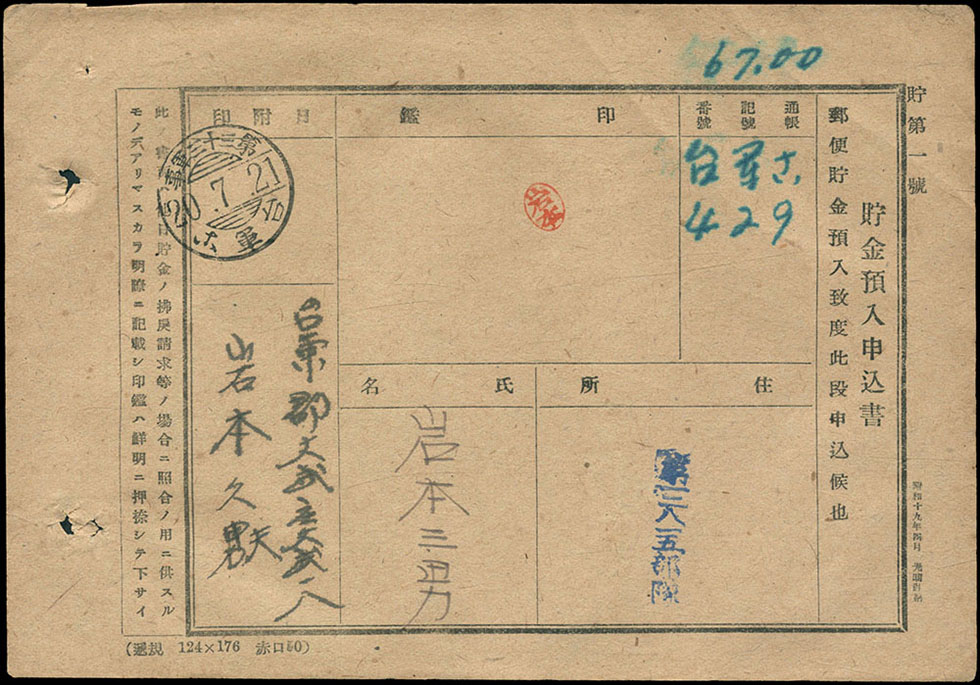 67.00
貯第一號
貯金預入申込書
郵便貯金預入致度此段申込候也
通帳
記號
番號
台軍さ
429
印鑑
岩本
月附印
20.7.21
台
軍
住所
第一二八一五部隊
氏名
岩本三男
台東郡大武庄大武一八
岩本久
此ノ
貯金ノ拂戻請求等ノ場合ニ照合ノ用ニ供スル
モノデアリマスカラ明瞭ニ記載シ印鑑ハ鮮明ニ押捺シテ下サイ
昭和十九年四月
(遞規 124×176 赤口50)